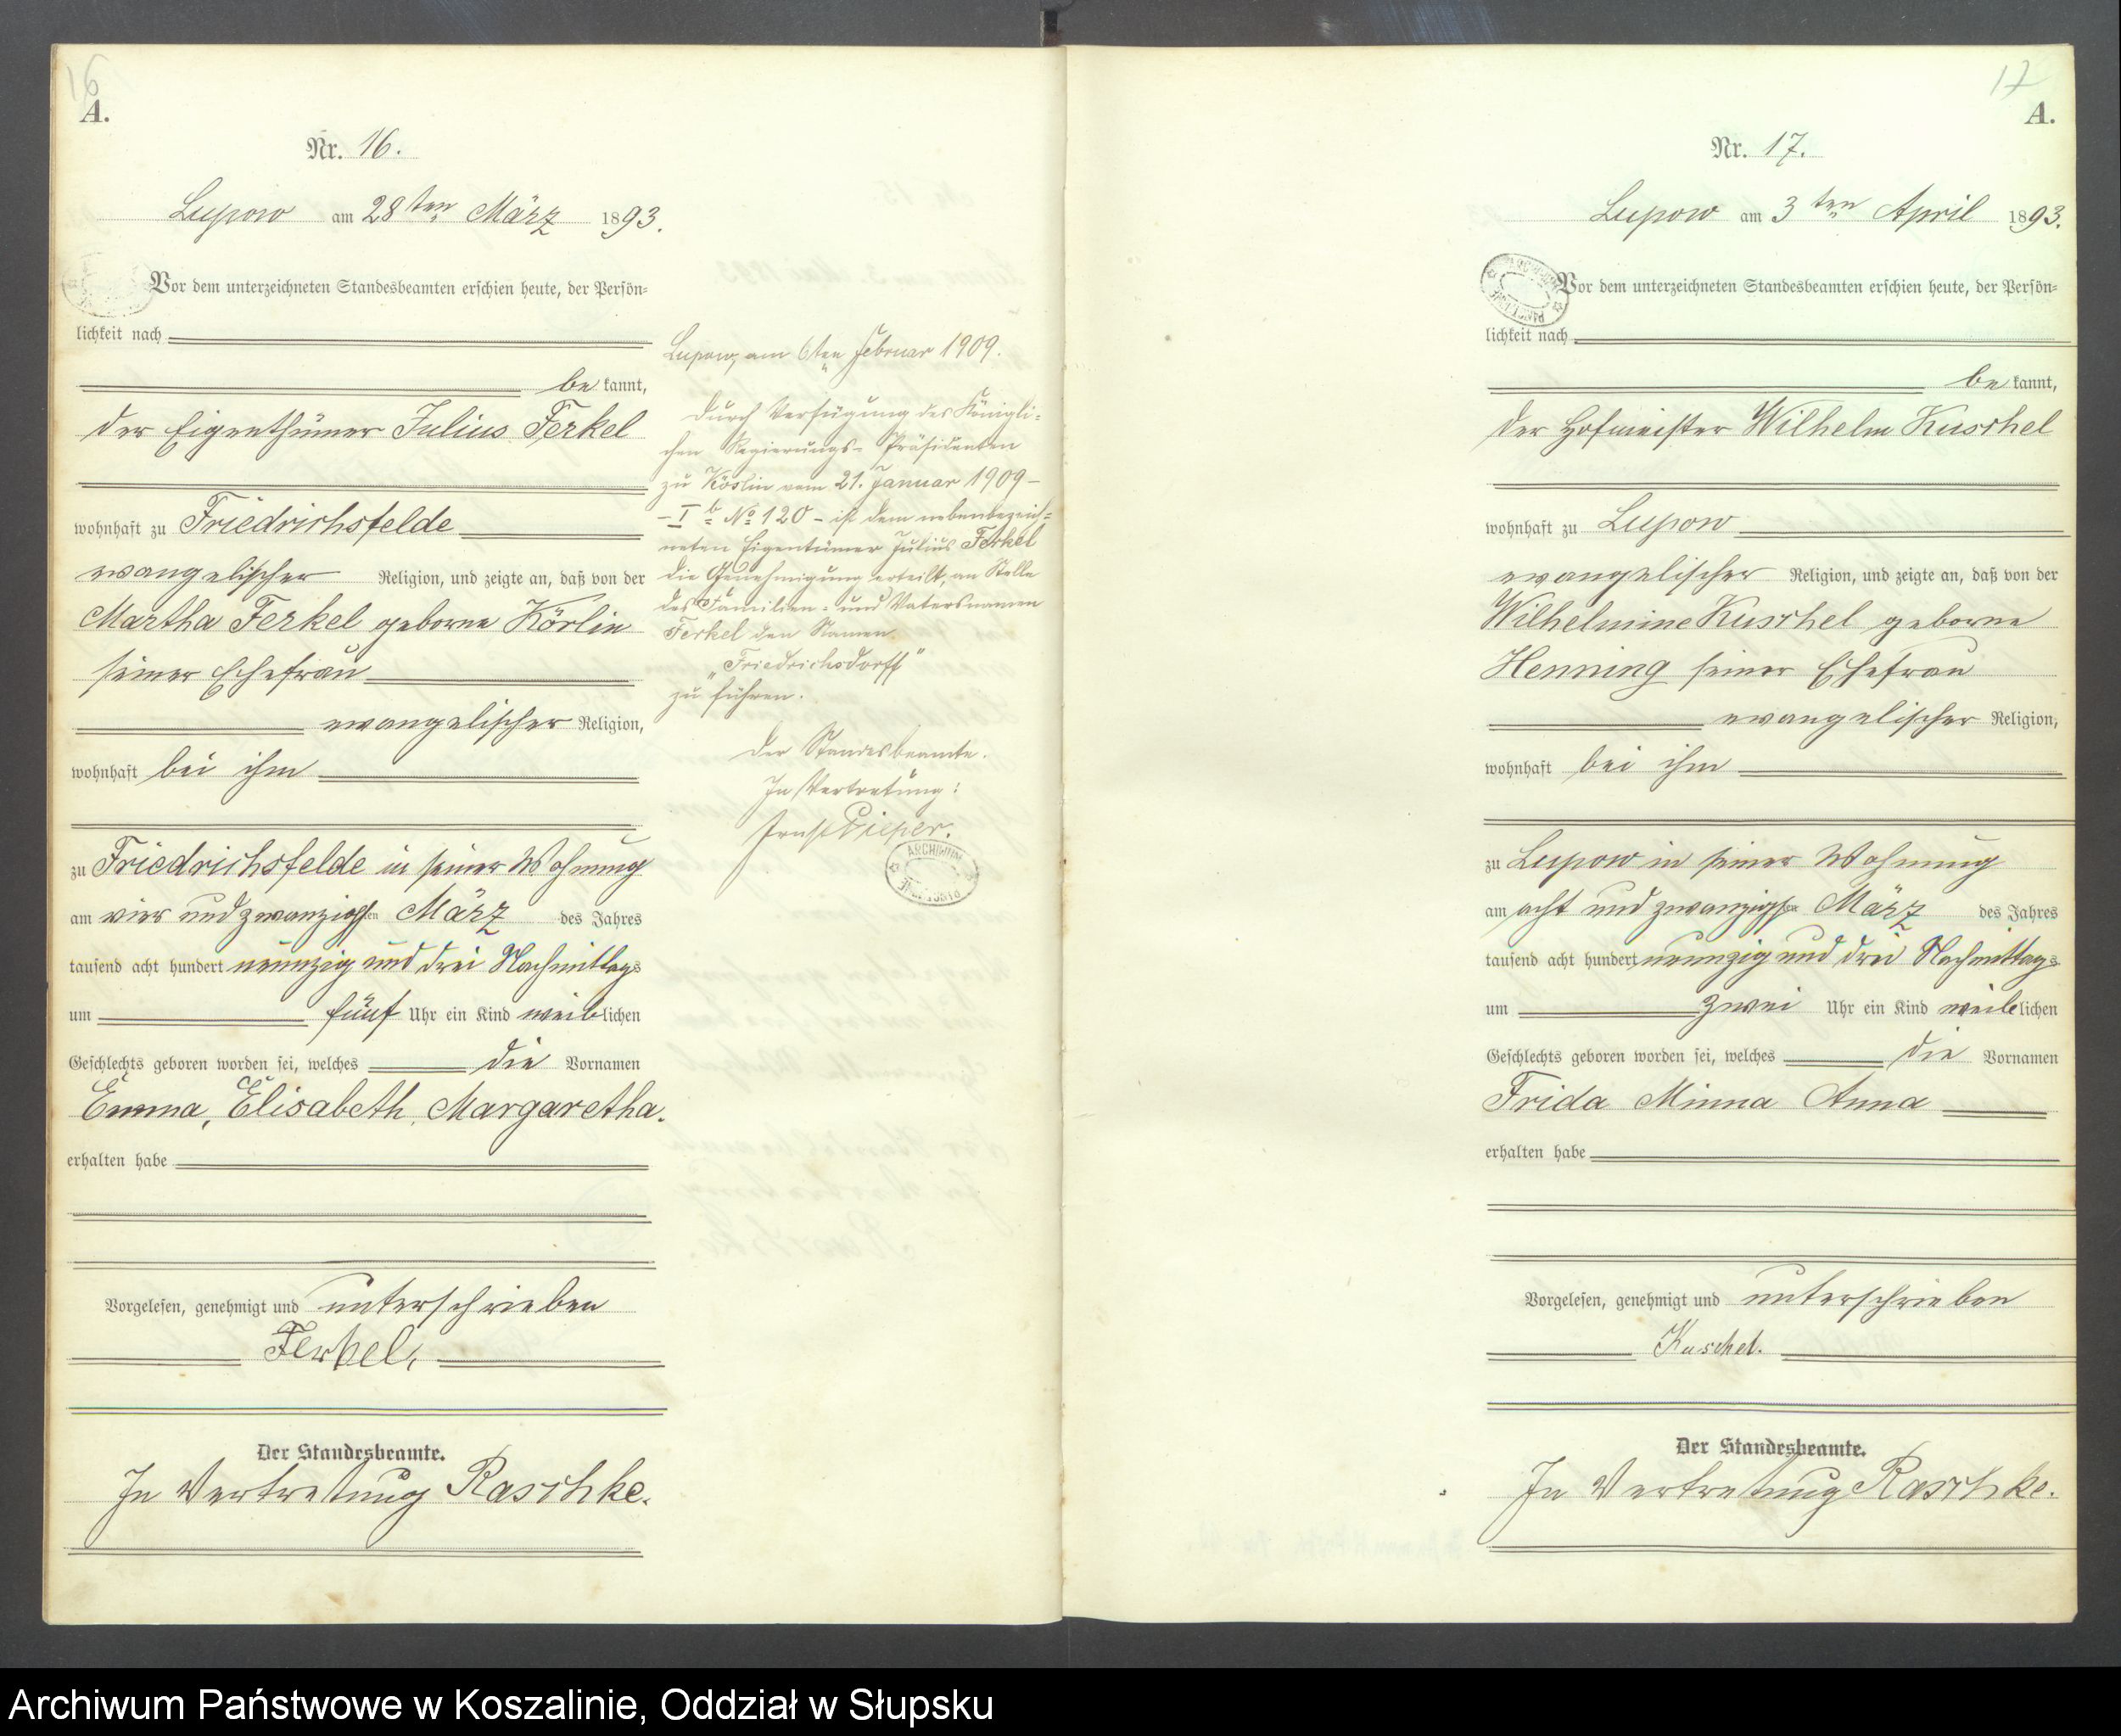 16
A.
Nr. 16.
Lupow am 28ten März 1893.
Vor dem unterzeichneten Standesbeamten erschien heute, der Persön=
lichkeit nach
be kannt,
der Eigenthümer Julius Ferkel
wohnhaft zu Friedrichsfelde
evangelischer Religion, und zeigte an, daß von der
Martha Ferkel geborne Körlin
seiner Ehefrau
evangelischer Religion,
wohnhaft bei ihm
zu Friedrichsfelde in seiner Wohnung
am vier und zwanzigsten März des Jahres
tausend acht hundert neunzig und drei Nachmittags
um fünf Uhr ein Kind weiblichen
Geschlechts geboren worden sei, welches die Vornamen
Emma, Elisabeth, Margaretha.
erhalten habe
Vorgelesen, genehmigt und unterschrieben
Ferkel,
Der Standesbeamte.
In Vertretung Raschke.
Lupow, am 6ten Februar 1909.
Durch Verfügung des Königli=
chen Regierungs-Präsidenten
zu Köslin vom 21. Januar 1909 –
– I b No 120 – ist dem nebenbezeich=
neten Eigentümer Julius Ferkel
die Genehmigung erteilt, an Stelle
des Familien- und Vatersnamen
Ferkel den Namen
„Friedrichsdorff"
zu führen.
Der Standesbeamte.
In Vertretung:
Ernst Pieper.
ARCHIWUM
17
A.
Nr. 17.
Lupow am 3ten April 1893.
Vor dem unterzeichneten Standesbeamten erschien heute, der Persön=
lichkeit nach
be kannt,
der Hofmeister Wilhelm Kuschel
wohnhaft zu Lupow
evangelischer Religion, und zeigte an, daß von der
Wilhelmine Kuschel geborne
Henning seiner Ehefrau
evangelischer Religion,
wohnhaft bei ihm
zu Lupow in seiner Wohnung
am acht und zwanzigsten März des Jahres
tausend acht hundert neunzig und drei Nachmittags
um zwei Uhr ein Kind weiblichen
Geschlechts geboren worden sei, welches die Vornamen
Frida Minna Anna
erhalten habe
Vorgelesen, genehmigt und unterschrieben
Kuschel.
Der Standesbeamte.
In Vertretung Raschke.
Archiwum Państwowe w Koszalinie, Oddział w Słupsku